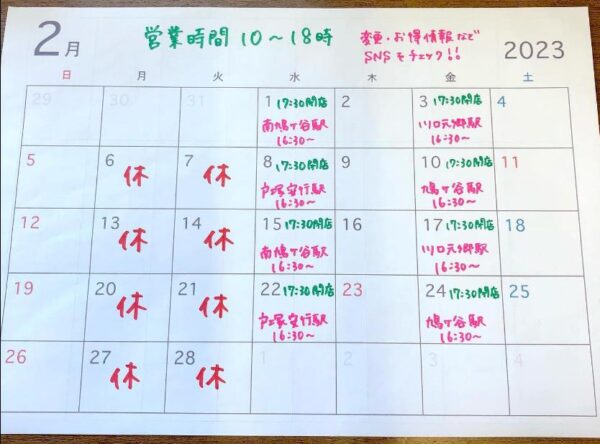 2月 営業時間 10〜18時 変更・お得情報など 2023
SNSをチェック!!
日 月 火 水 木 金 土
29 30 31 1 17:30閉店 2 3 17:30閉店 4
南鳩ヶ谷駅 川口元郷駅
16:30〜 16:30〜
5 6 7 8 17:30閉店 9 10 17:30閉店 11
休 休 戸塚安行駅 鳩ヶ谷駅
16:30〜 16:30〜
12 13 14 15 17:30閉店 16 17 17:30閉店 18
休 休 南鳩ヶ谷駅 川口元郷駅
16:30〜 16:30〜
19 20 21 22 17:30閉店 23 24 17:30閉店 25
休 休 戸塚安行駅 鳩ヶ谷駅
16:30〜 16:30〜
26 27 28 1 2 3 4
休 休